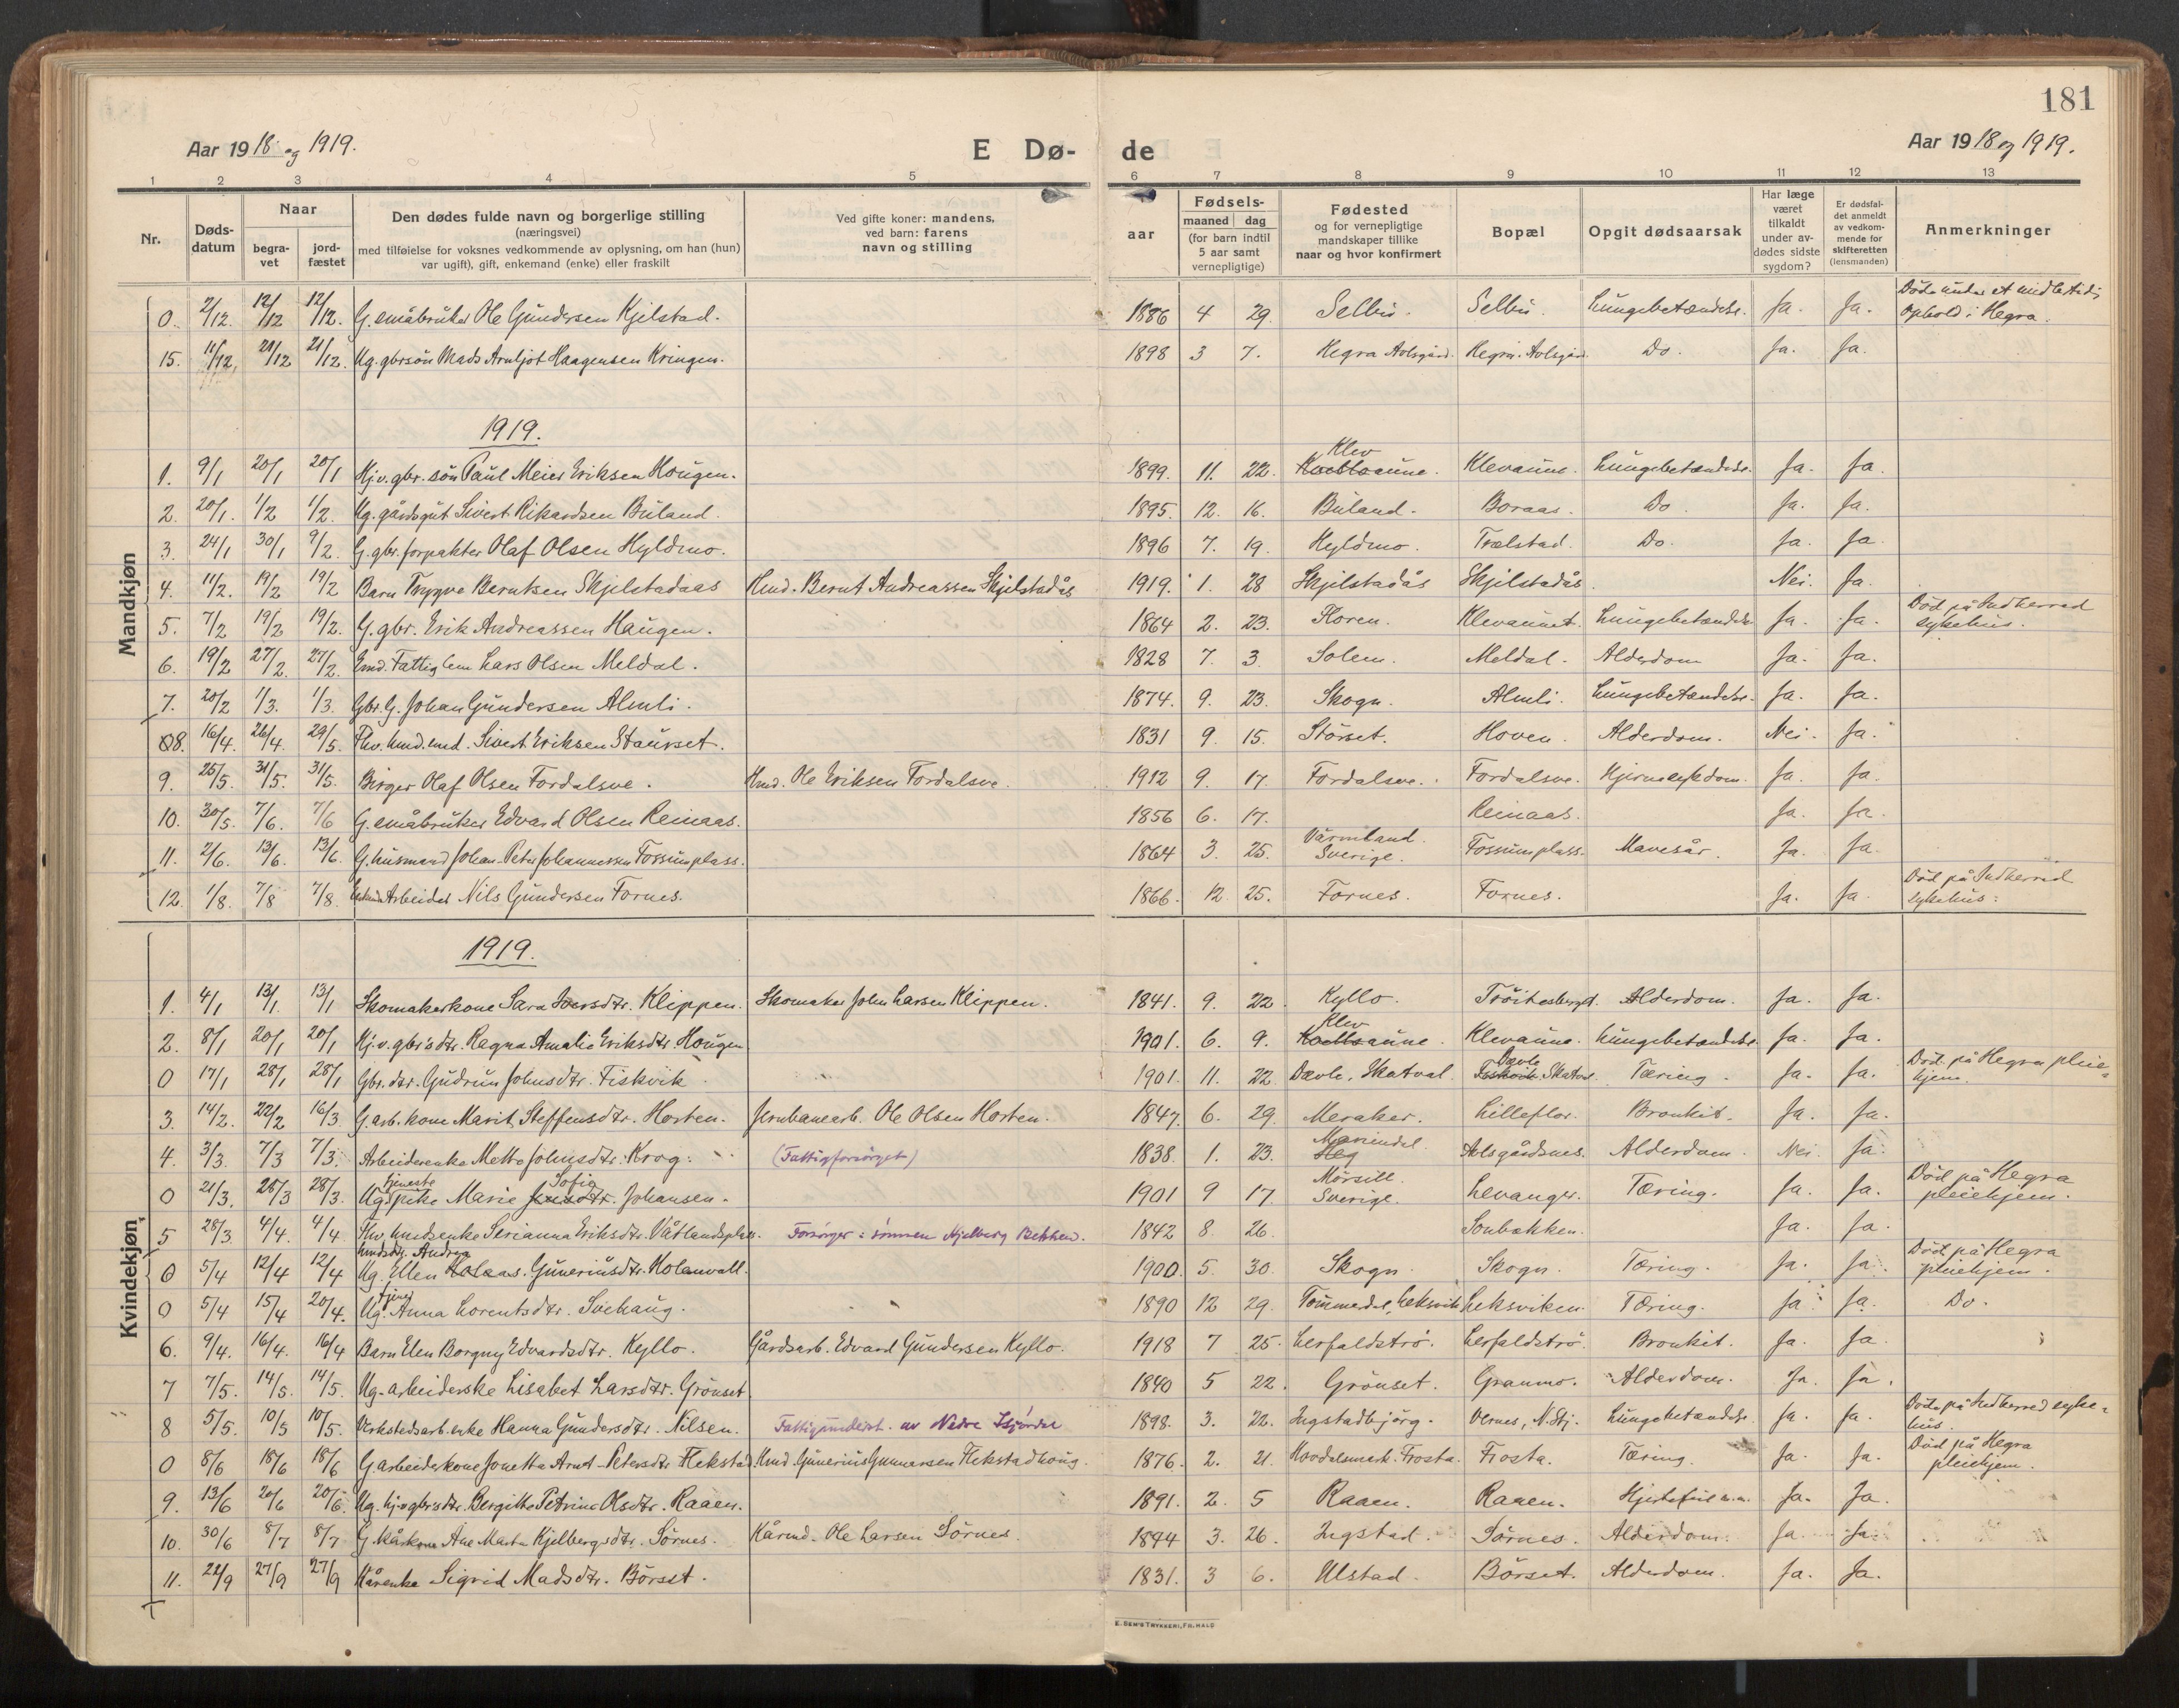 181
Aar 1918 og 1919.
E Dø- de
Aar 1918 og 1919.
1 2 3 4 5 6 7 8 9 10 11 12 13
Nr.
Døds-datum
Naar
begra-vet
jord-fæstet
Den dødes fulde navn og borgerlige stilling
(næringsvei)
med tilføielse for voksnes vedkommende av oplysning, om han (hun)
var ugift), gift, enkemand (enke) eller fraskilt
Ved gifte koner: mandens,
ved barn: farens
navn og stilling
Fødsels-
aar
maaned dag
(for barn indtil
5 aar samt
vernepligtige)
Fødested
og for vernepligtige
mandskaper tillike
naar og hvor konfirmert
Bopæl
Opgit dødsaarsak
Har læge
været
tilkaldt
under av-
dødes sidste
sygdom?
Er dødsfal-
det anmeldt
av vedkom-
mende for
skifteretten
(lensmanden)
Anmerkninger
Mandkjøn
0. 2/12. 12/12 12/12. G. småbruker Ole Gundersen Kjelstad. 1886 4 29. Selbu. Selbu. Lungebetændelse. Ja. Ja. Døde under et midlertidig ophold i Hegra.
15. 11/12. 21/12 21/12. Ug. gbrsøn Mads Arnljot Haagensen Kringen. 1898 3 7. Hegra Avlsgård. Hegra. Avlsgård Do. Ja. Ja.
1919.
1. 9/1 20/1 20/1 Hj.v. gbr. søn Paul Meier Eriksen Hougen. 1899. 11. 22. Klevaune. Klevaune. Lungebetændelse. Ja. Ja.
2. 20/1. 1/2 1/2. Ug. gårdsgut Sivert Rikardsen Buland. 1895. 12. 16. Buland. Boraas. Do. Ja. Ja.
3. 24/1 30/1 9/2. G. gbr. forpakter Olaf Olsen Hyldmo. 1896 7. 19. Hyldmo. Trælstad. Do. Ja. Ja.
4. 11/2. 19/2 19/2 Barn Trygve Berntsen Skjelstadaas Hmd. Bernt Andreassen Skjelstadås 1919. 1. 28 Skjelstadås Skjelstadås. Nei. Ja.
5. 7/2 19/2 19/2. G. gbr. Erik Andreassen Haugen. 1864 2. 23. Floren. Klevaunet. Lungebetændelse Ja. Ja. Død på Indherred sykehus.
6. 19/2 27/2. 27/2. Emd. Fattiglem Lars Olsen Meldal. 1828 7. 3. Solem. Meldal. Alderdom Ja. Ja.
7. 20/2 1/3. 1/3. Gbr. G. Johan Gundersen Almli. 1874. 9. 23. Skogn. Almli. Lungebetændelse. Ja. Ja.
8. 16/4. 26/4. 29/5. Fhv. hmd. emd. Sivert Eriksen Staurset. 1831 9. 15. Størset. Hoven. Alderdom. Nei. Ja.
9. 25/5. 31/5. 31/5. Birger Olaf Olsen Fordalsve. Hmd. Ole Eriksen Fordalsve. 1912 9. 17. Fordalsve. Fordalsve. Hjernesykdom. Ja. Ja.
10. 30/5. 7/6. 7/6 G. småbruker Edvard Olsen Reinaas. 1856 6. 17. Reinaas. Ja. Ja.
11. 2/6. 13/6. 13/6. G. husmand Johan Peter Johannessen Fossumplass. 1864 3. 25. Värmland. Sverige. Fossumplass. Mavesår. Ja. Ja.
12. 1/8. 7/8 7/8. Arbeider Nils Gundersen Fornes. 1866. 12. 25. Fornes. Fornes. Ja. Ja. Død på Indherred sykehus.
Kvindekjøn
1919.
1. 4/1 13/1 13/1 Skomakerkone Sara Iversdtr. Klippen. Skomaker John Larsen Klippen. 1841. 9. 22. Kyllo. Alderdom. Ja. Ja.
2. 8/1 20/1 20/1 Hj.v. gbr's dtr. Ragna Amalie Eriksdtr. Hougen 1901. 6. 9. Klevaune. Klevaune. Lungebetændelse. Ja. Ja.
0 17/1 28/1 28/1 Gbr. dtr. Gudrun Johnsdtr. Fiskvik 1901. 11. 22 Davle, Skatval Davle Skatval. Tæring. Ja. Ja. Død på Hegra pleiehjem.
3. 14/2. 22/2 16/3 G. arb. kone Marit Steffensdtr. Horten. Jernbanearb. Ole Olsen Horten. 1847. 6. 29. Meraker. Lilleflor. Bronkit. Ja. Ja.
4. 3/3. 7/3 7/3. Arbeiderenke Mette Johnsdtr. Krog. (Fattigforsørget) 1838. 1. 23. Avlsgårdsnes. Alderdom. Nei. Ja.
0 21/3. 28/3 28/3. Ug. tjeneste pike Marie Sofie Johansen. 1901 9 17. Mörsill. Sverige. Levanger. Tæring. Ja. Ja. Død på Hegra pleiehjem.
5 28/3. 4/4. 4/4. Fhv. husmdsenke Serianna Eriksdtr. Våtlandsplass. Forsørger: sønnen Kjelberg Bekken. 1842 8 26. Sonbækken. Ja. Ja.
0 5/4 12/4 12/4 Ug. hmdsdtr. Ellen Andrea Guneriusdtr. Holanvall. 1900. 5. 30. Skogn. Skogn. Tæring. Ja. Ja. Død på Hegra pleiehjem.
0 5/4 15/4 20/4. Ug. tjene Anna Lorentsdtr. Svehaug. 1890 12 29. Tømmerdal, Leksvik Leksviken. Tæring. Ja. Ja. Do.
6. 9/4. 16/4. 16/4 Barn Elen Borgny Edvardsdtr. Kyllo. Gårdsarb. Edvard Gundersen Kyllo. 1918 7 25. Lerfaldstrø. Lerfaldstrø. Bronkit. Ja. Ja.
7 7/5. 14/5. 14/5. Ug. arbeiderske Lisabet Larsdtr. Grønset 1840 5 22. Grønset. Granmo. Alderdom. Ja. Ja.
8 5/5. 10/5 10/5. Verkstedsarb. enke Hanna Gundersdtr. Nilsen. Fattigunderst. av Nedre Stjørdal 1898. 3. 22. Ingstadbjörg. Vernes, N. Stj. Lungebetændelse. Ja. Ja. Døde på Indherred sykehus.
0 8/6 18/6 18/6 G. arbeiderkone Jonetta Arnt-Petersdtr Flekstad. Hmd. Gunerius Gunnarsen Flekstadhoug. 1876. 2. 21. Frosta. Frosta. Tæring. Ja. Ja. Død på Hegra pleiehjem.
9. 13/6 20/6 20/6. Ug. hj.v. gbr's dtr. Bergitte Petrine Olsdtr. Raaen. 1891. 2. 5 Raaen. Raaen. Hjertefeil m.m. Ja. Ja.
10. 30/6 8/7 8/7 G. kårkone Ane Marta Kjelbergsdtr. Sørnes. Kårmd. Ole Larsen Sørnes. 1844 3. 26. Ingstad. Sørnes. Alderdom. Ja. Ja.
11. 22/9 27/9 27/9 Kårenke Sigrid Madsdtr. Börset. 1831. 3 6. Ulstad. Börset. Alderdom. Ja. Ja.
E. SEM'S TRYKKERI, FR.HALD